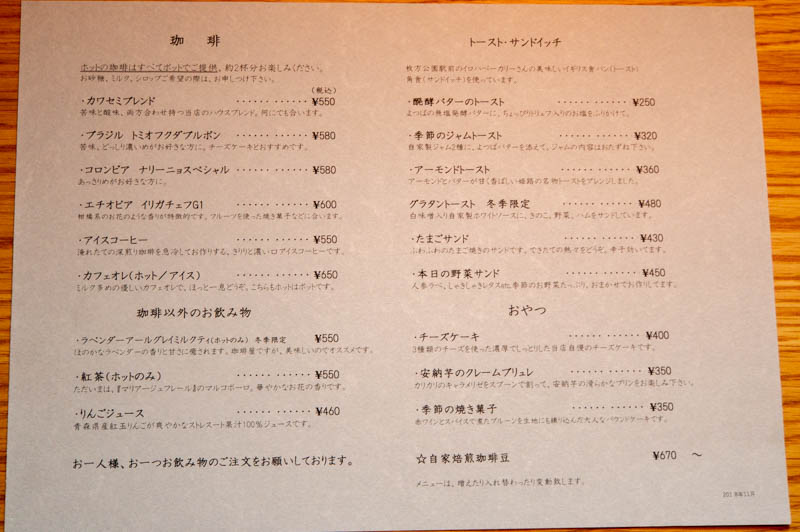 珈 琲
ホットの珈琲はすべてポットでご提供、約2杯分お楽しみください。
お砂糖、ミルク、シロップご希望の際は、お申しつけ下さい。
(税込)
・カワセミブレンド ・・・・・・ ・・・・・・・ ¥550
苦味と酸味、両方合わせ持つ当店のハウスブレンド。何にでも合います。
・ブラジル トミオフクダブルボン ・・・・・・ ・・・・・・・ ¥580
苦味、どっしり濃いめがお好きな方に。チーズケーキとおすすめです。
・コロンビア ナリーニョスペシャル ・・・・・・ ・・・・・・・ ¥580
あっさりめがお好きな方に。
・エチオピア イリガチェフG1 ・・・・・・ ・・・・・・・ ¥600
柑橘系のお花のような香りが特徴的です。フルーツを使った焼き菓子などに合います。
・アイスコーヒー ・・・・・・ ・・・・・・・ ¥550
淹れたての深煎り珈琲を急冷してお作りする、きりりと濃い口アイスコーヒーです。
・カフェオレ(ホット/アイス) ・・・・・・ ・・・・・・・ ¥650
ミルク多めの優しいカフェオレで、ほっと一息どうぞ。こちらもホットはポットです。
珈琲以外のお飲み物
・ラベンダーアールグレイミルクティ(ホットのみ) 冬季限定 ¥550
ほのかなラベンダーの香りと甘さに癒されます。珈琲屋ですが、美味しいのでオススメです。
・紅茶(ホットのみ) ・・・・・・ ・・・・・・・ ¥550
ただいまは、『マリアージュフレール』のマルコポーロ。華やかなお花の香りです。
・りんごジュース ・・・・・・ ・・・・・・・ ¥460
青森県産紅玉りんごが爽やかなストレート果汁100%ジュースです。
お一人様、お一つお飲み物のご注文をお願いしております。
トースト・サンドイッチ
枚方公園駅前のイロハベーカリーさんの美味しいイギリス食パン(トースト)
角食(サンドイッチ)を使っています。
・醗酵バターのトースト ・・・・・・ ・・・・・・・ ¥250
よつばの無塩発酵バターに、ちょっぴりトリュフ入りのお塩をふりかけて。
・季節のジャムトースト ・・・・・・ ・・・・・・・ ¥320
自家製ジャム2種に、よつばバターを添えて。ジャムの内容はおたずね下さい。
・アーモンドトースト ・・・・・・ ・・・・・・・ ¥360
アーモンドとバターが甘く香ばしい姫路の名物トーストをアレンジしました。
グラタントースト 冬季限定 ・・・・・・ ・・・・・・・ ¥480
白味噌入り自家製ホワイトソースに、きのこ、野菜、ハムをサンドしています。
・たまごサンド ・・・・・・ ・・・・・・・ ¥430
ふわふわのたまご焼きのサンドです。できたての熱々をどうぞ。辛子効いてます。
・本日の野菜サンド ・・・・・・ ・・・・・・・ ¥450
人参ラペ、しゃきしゃきレタスetc.季節のお野菜たっぷり。おまかせでお作りしてます。
おやつ
・チーズケーキ ・・・・・・ ・・・・・・・ ¥400
3種類のチーズを使った濃厚でしっとりした当店自慢のチーズケーキです。
・安納芋のクレームブリュレ ・・・・・・ ・・・・・・・ ¥350
カリカリのキャラメリゼをスプーンで割って、安納芋の滑らかなプリンをお楽しみ下さい。
・季節の焼き菓子 ・・・・・・ ・・・・・・・ ¥350
赤ワインとスパイスで煮たプルーンを生地にも練り込んだ大人なパウンドケーキです。
☆自家焙煎珈琲豆 ¥670 ~
メニューは、増えたり入れ替わったり変動致します。
2018年11月